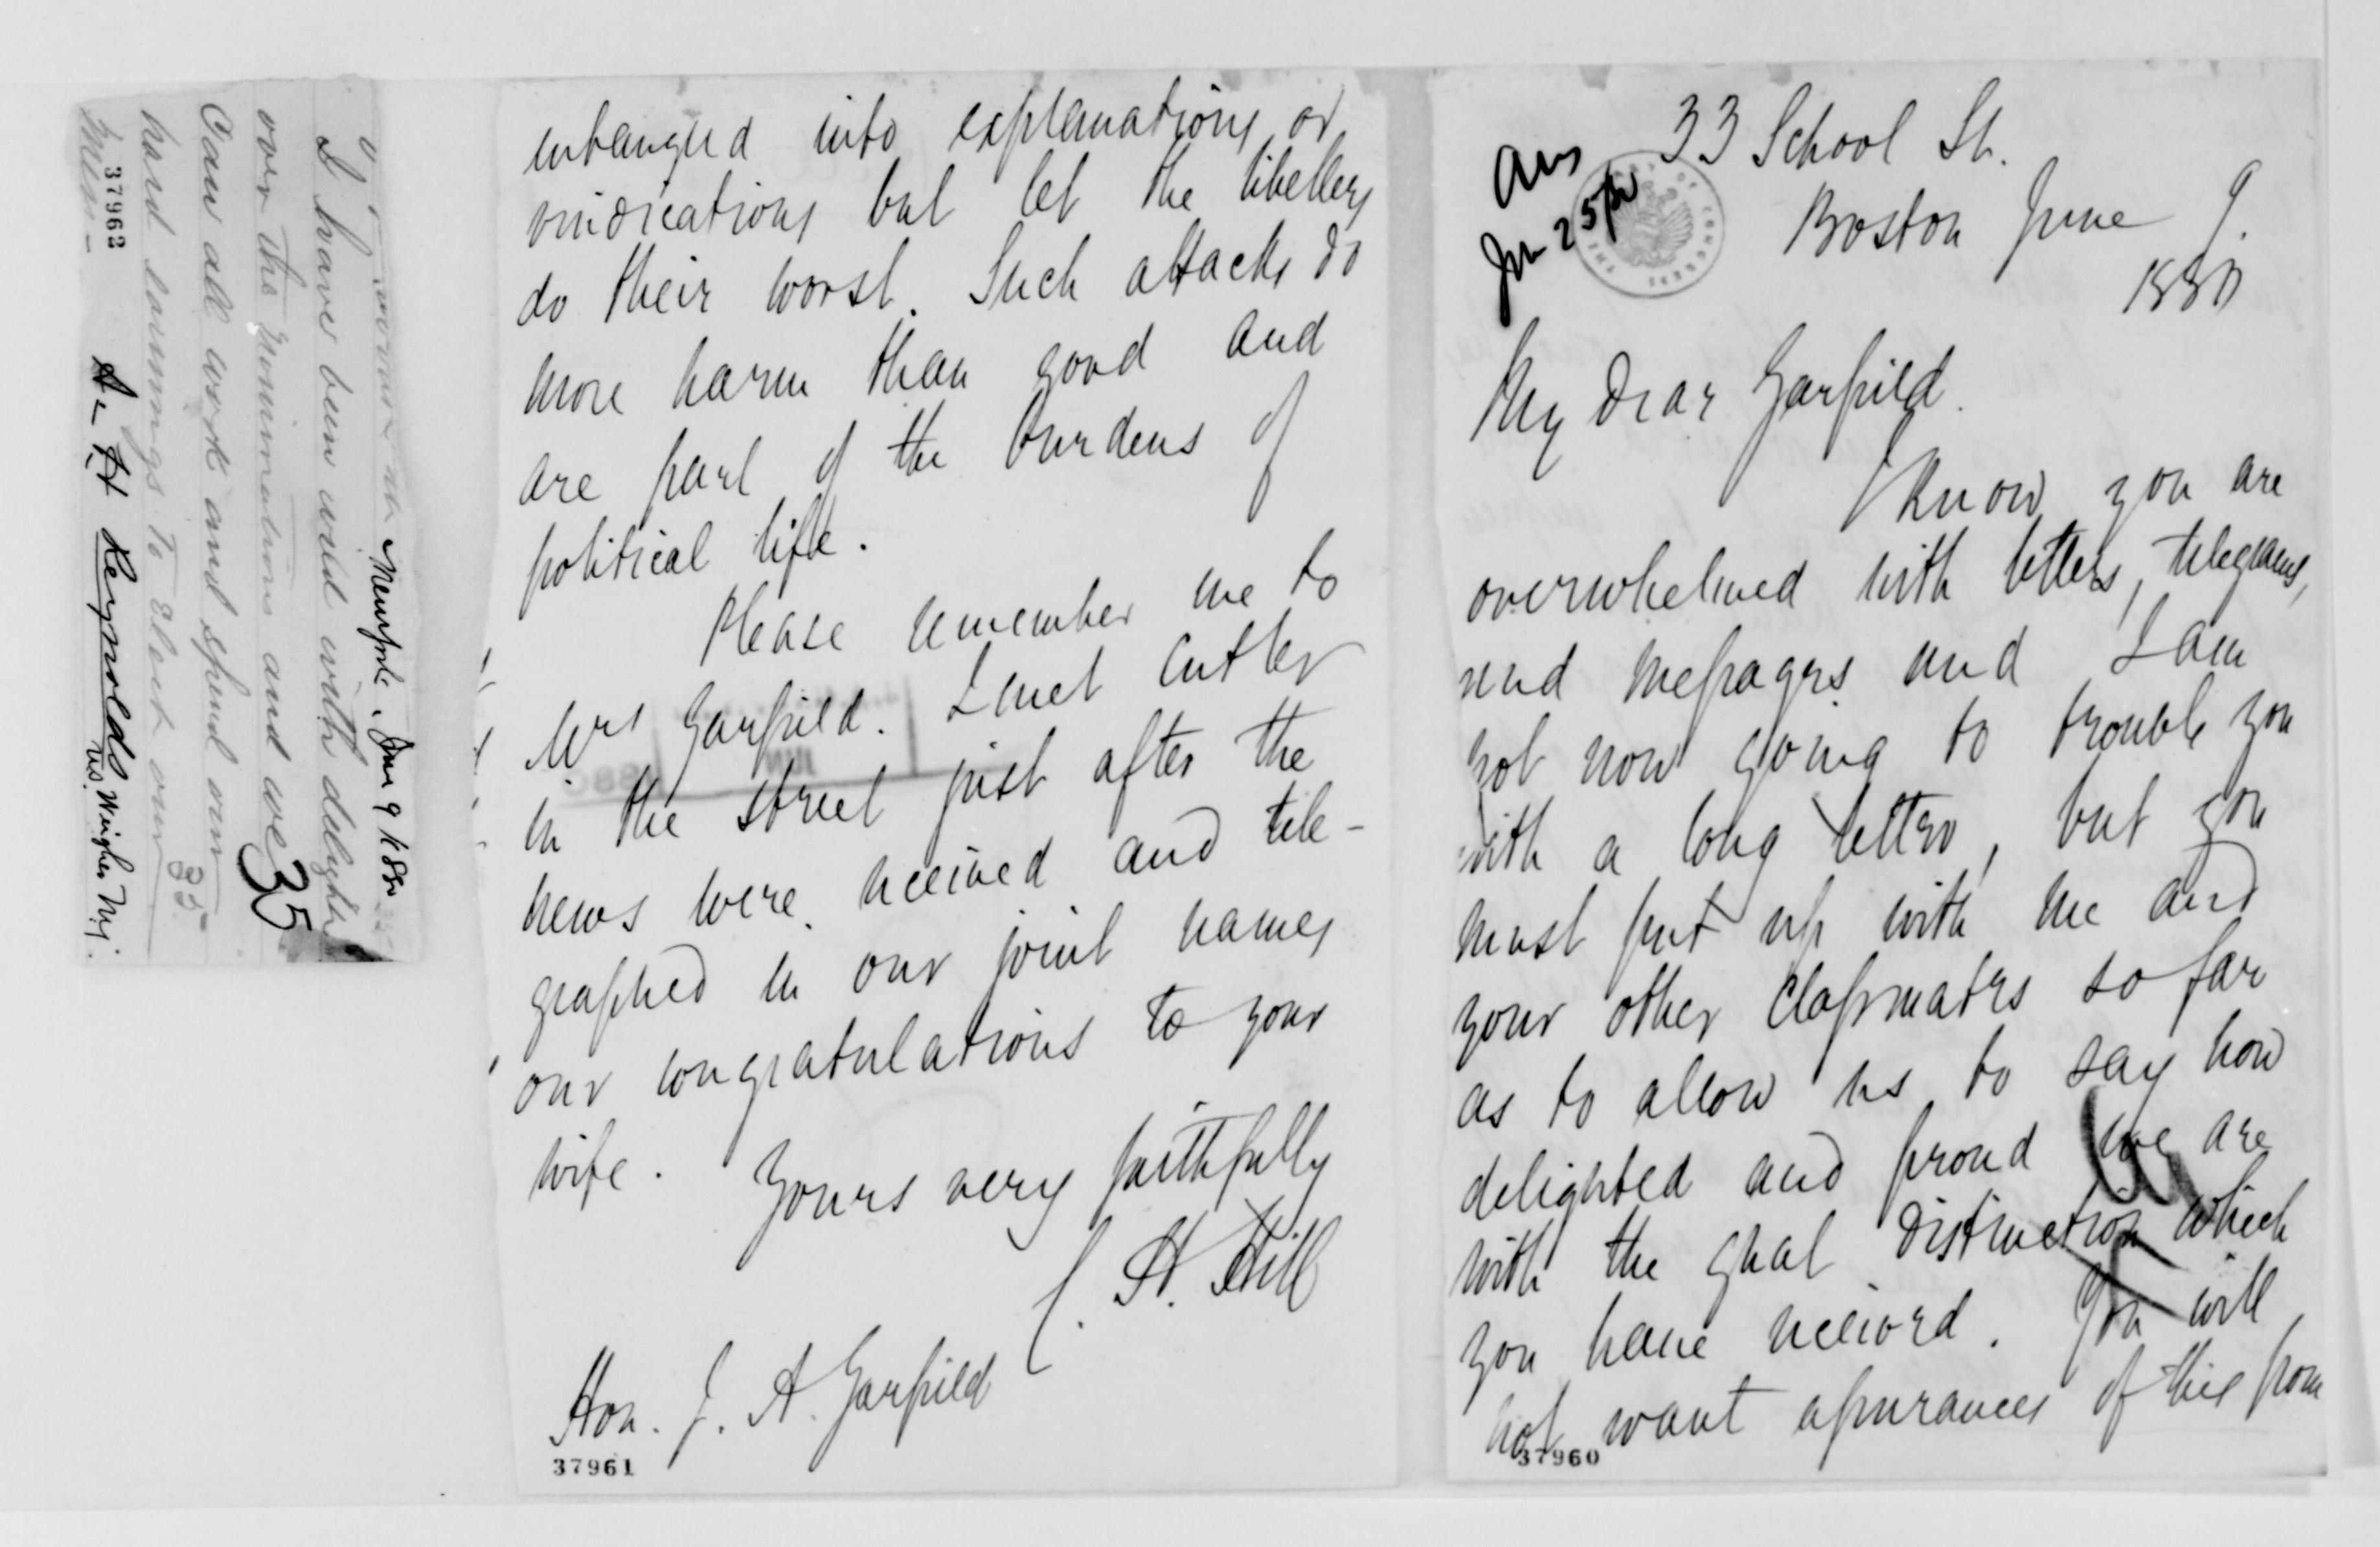 33 School St.
Boston June 9.
1880
Ans
Jun 25 / 80
My Dear Garfield.
I know you are
overwhelmed with letters, telegrams,
and messages and I am
not now going to trouble you
with a long letter, but you
must put up with me and
your other classmates so far
as to allow us to say how
delighted and proud we are
with the great distinction which
you have received. You will
not want assurances of this from
37960
entangled into explanations or
vindications but let the libellers
do their worst. Such attacks do
more harm than good and
are part of the burdens of
political life.
Please remember me to
Mrs Garfield. I met Cutler
in the street just after the
news were received and tele-
graphed in our joint names
our congratulations to your
wife. Yours very faithfully
C. H. Hill
Hon. J. A. Garfield
37961
Memphis, June 9 1880
I have been wild with delight
over the nominations and we
Can all work and spend our
hard earnings to Elect our
men —
35
35
A. H. Reynolds
US. Weigher N.Y.
37963